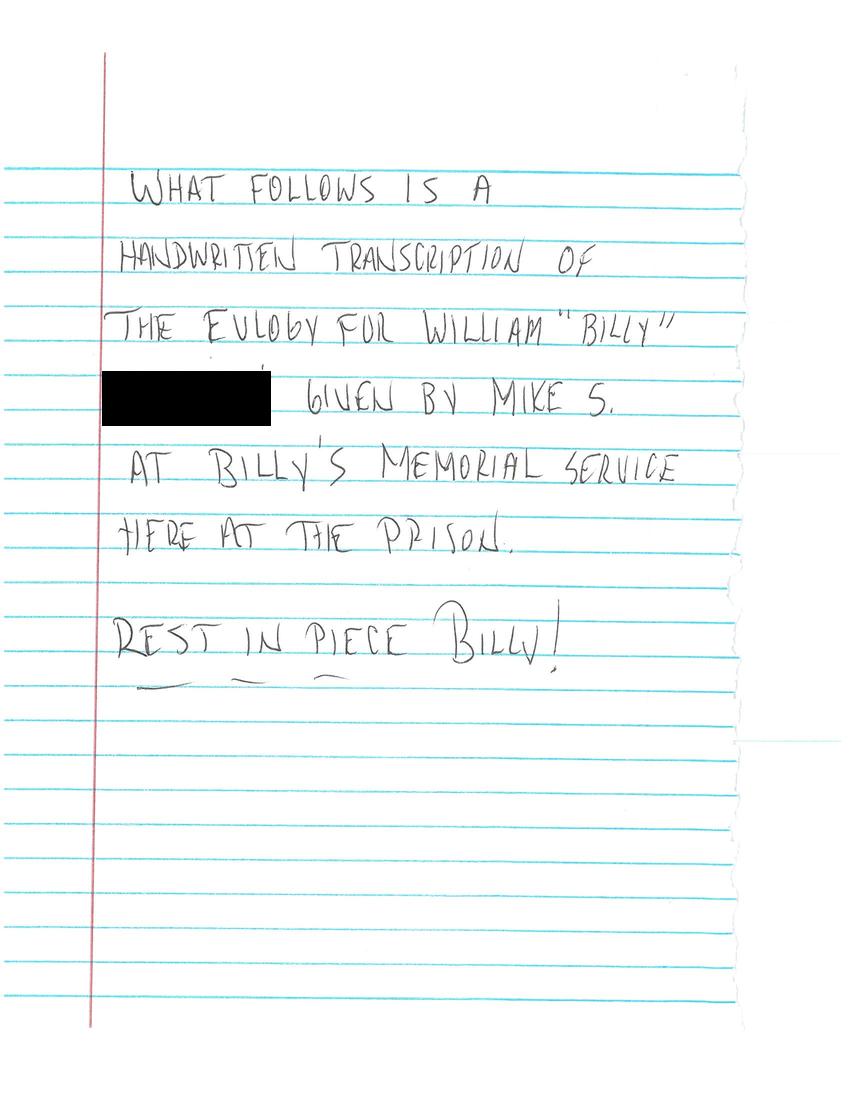 WHAT FOLLOWS IS A
HANDWRITTEN TRANSCRIPTION OF
THE EULOGY FOR WILLIAM "BILLY"
GIVEN BY MIKE S.
AT BILLY'S MEMORIAL SERVICE
HERE AT THE PRISON.
REST IN PIECE BILLY!